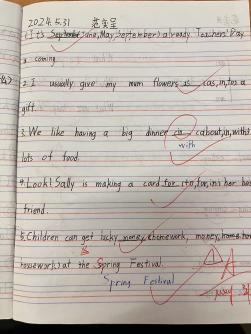 2024.5.31 范奕呈
1. It's September (June, May, September) already. Teachers' Day
coming.
2. I usually give my mum flowers as (as, in, to) a
gift.
3. We like having a big dinner in (about, in, with)
with
lots of food.
4. Look! Sally is making a card for (to, for, in) her best
friend.
5. Children can get lucky money (homework, money, home
homework) at the Spring Festival.
Spring Festival